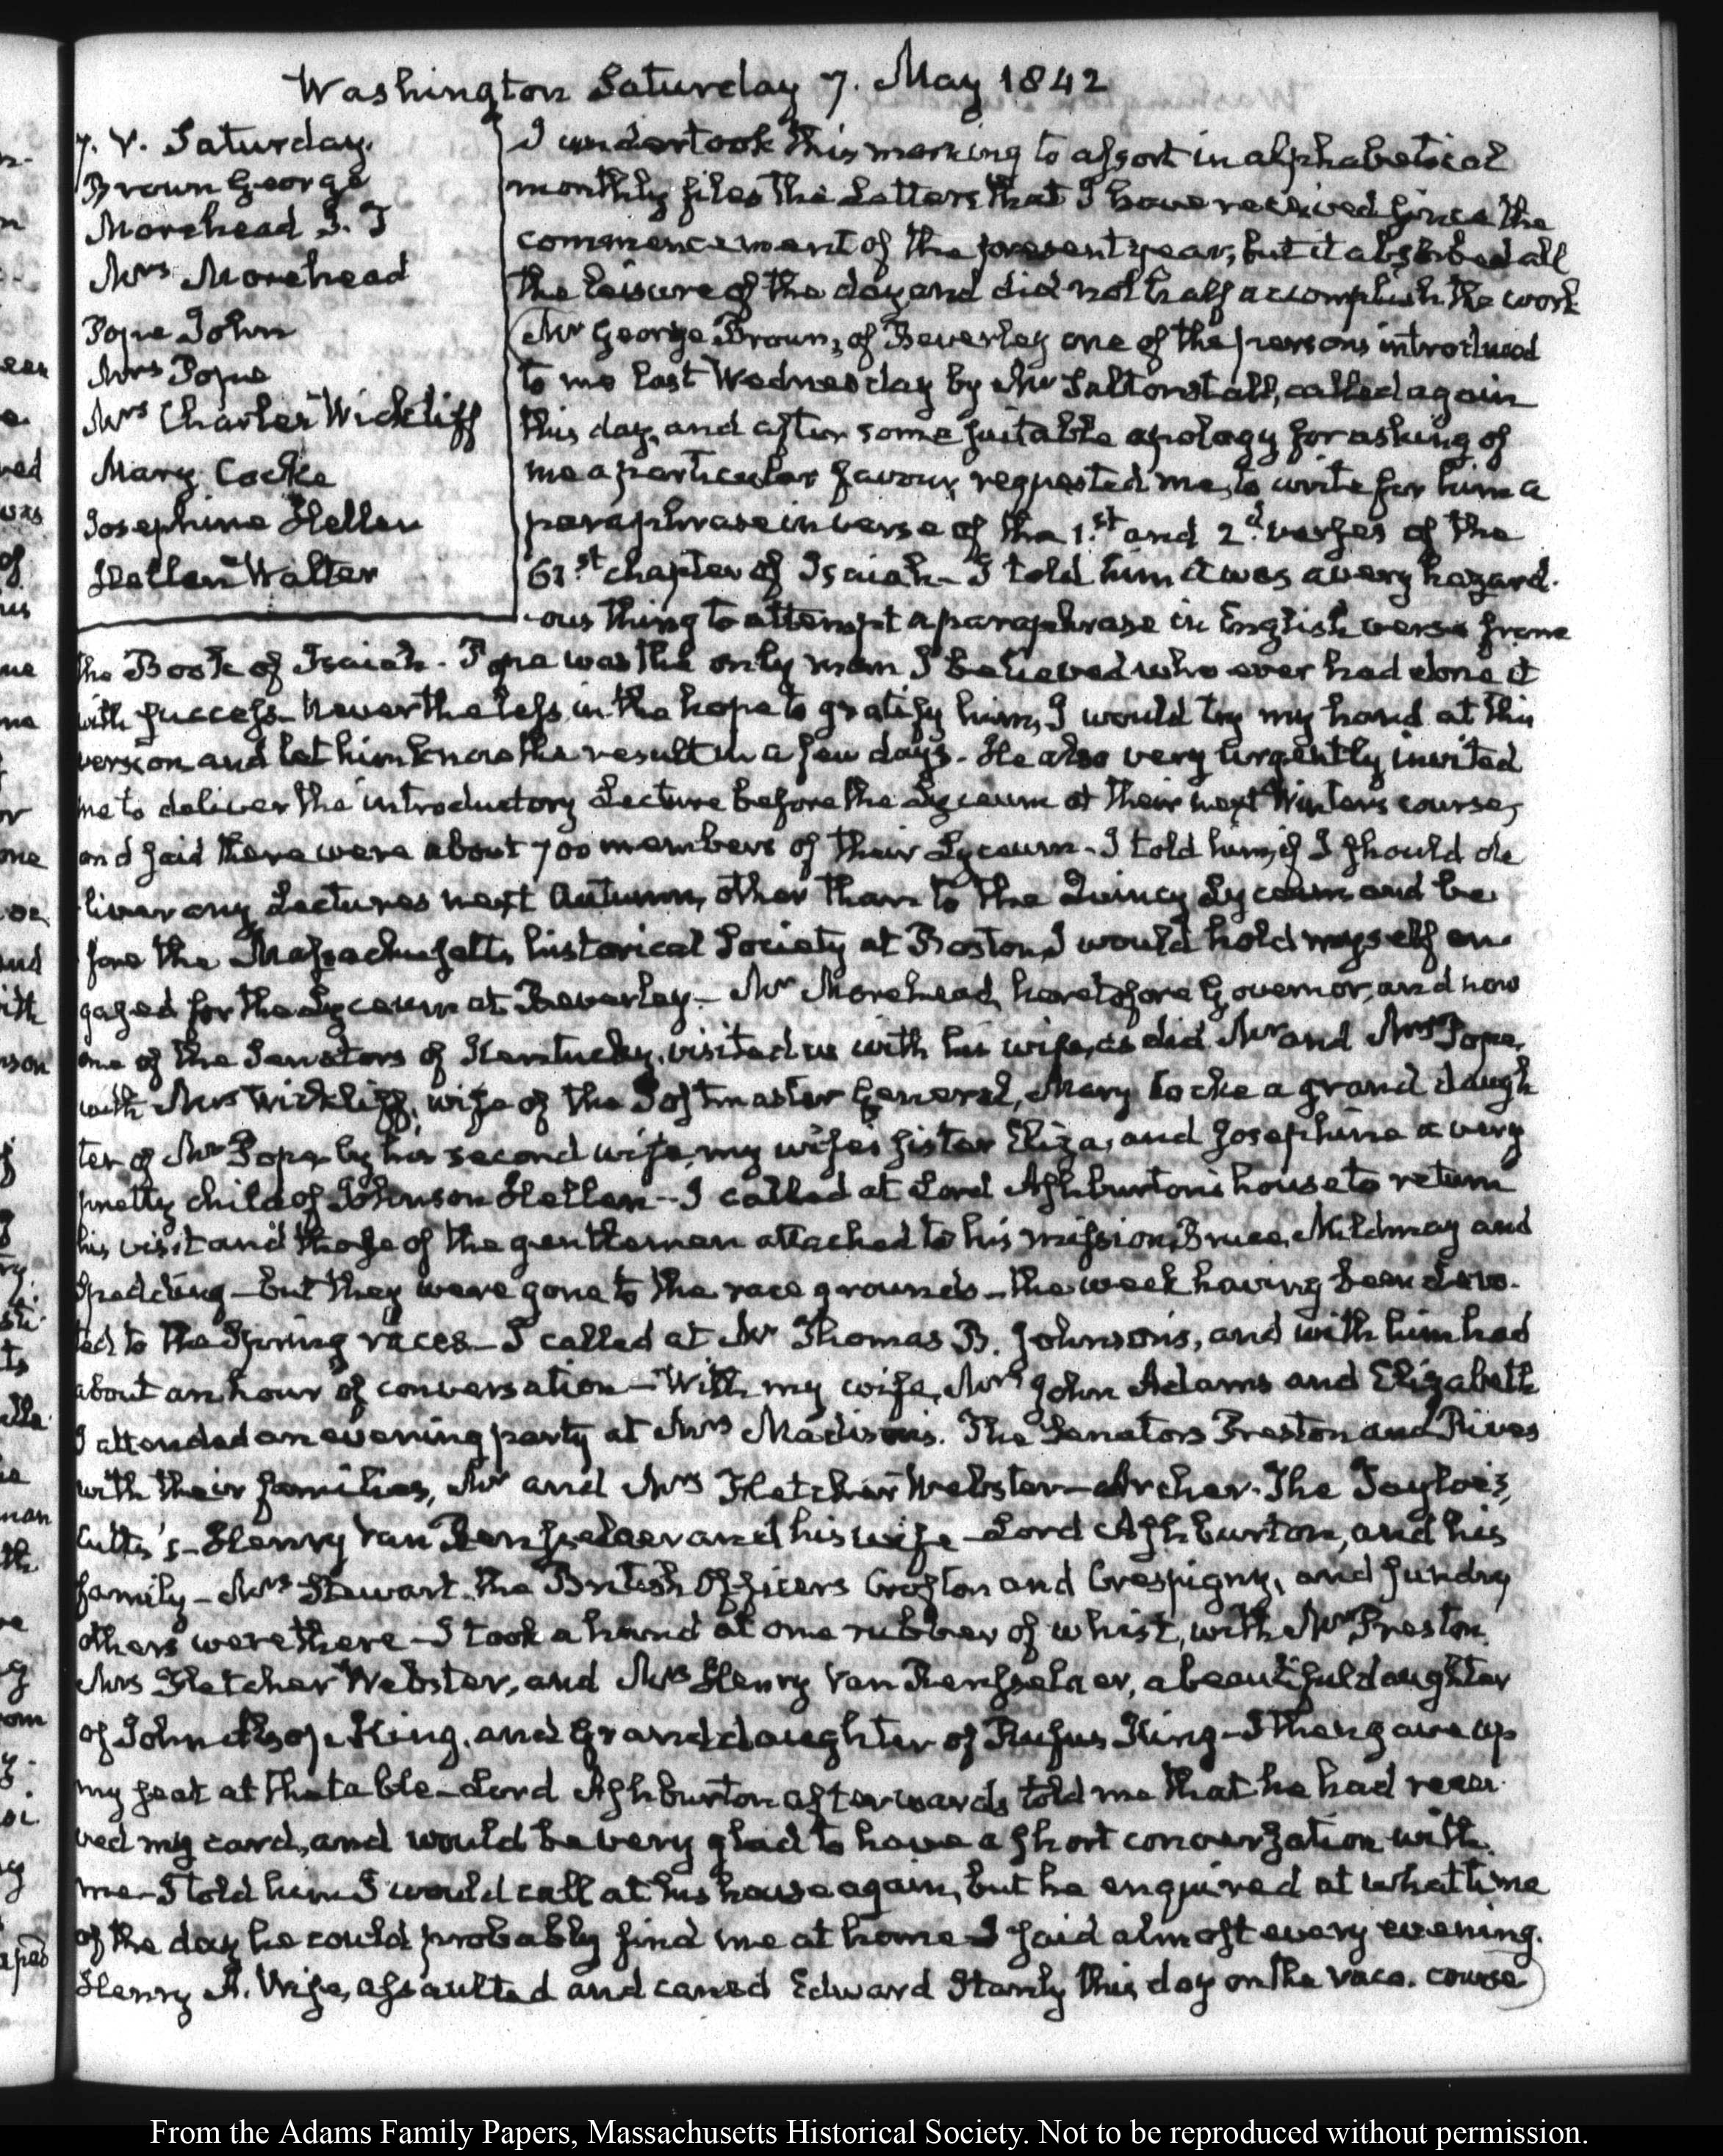 Washington Saturday 7. May 1842
7. V. Saturday.
Brown George
Morehead J. T
Mrs Morehead
Pope John
Mrs Pope
Mrs Charles Wickliff
Mary Cocke
Josephine Hellen
Hellen Walter
I undertook this morning to assort in alphabetical
monthly files the Letters that I have received since the
commencement of the present year, but it absorbed all
the leisure of the day and did not half accomplish the work
Mr George Brown, of Beverley one of the persons introduced
to me last Wednesday by Mr Saltonstall, called again
this day, and after some suitable apology for asking of
me a particular favour, requested me, to write for him a
paraphrase in verse of the 1.st and 2.d verses of the
61.st chapter of Isaiah - I told him it was a very hazard-
-ous thing to attempt a paraphrase in English verse from
the Book of Isaiah. Pope was the only man I believed who ever had done it
with success - Nevertheless in the hope to gratify him, I would try my hand at this
version and let him know the result in a few days. He also very urgently invited
me to deliver the introductory Lecture before the Lyceum at their next Winters course,
and said there were about 700 members of their Lyceum - I told him, if I should de
liver any Lectures next Autumn, other than to the Quincy Lyceum and be
fore the Massachusetts historical Society at Boston, I would hold myself en
gaged for the Lyceum at Beverley - Mr Morehead, heretofore Governor, and now
one of the Senators of Kentucky, visited us with his wife, as did Mr and Mrs Pope,
with Mrs Wickliff, wife of the Postmaster General, Mary Cocke a grand daugh
ter of Mr Pope by his second wife, my wife's sister Eliza, and Josephine a very
pretty child of Johnson Hellen - I called at Lord Ashburton's house to return
his visit and those of the gentlemen attached to his mission, Bruce, Mildmay and
Spedding - but they were gone to the race grounds - the week having been devo-
ted to the Spring races - I called at Mr Thomas B. Johnson's, and with him had
about an hour of conversation - With my wife, Mrs John Adams and Elizabeth
I attended an evening party at Mrs Madison's. The Senators Preston and Rives
with their families, Mr and Mrs Fletcher Webster - Archer - The Tayloe's,
Cutts's - Henry Van Rensselaer and his wife - Lord Ashburton, and his
family - Mrs Stewart. the British Officers Crofton and Crespigny, and sundry
others were there - I took a hand at one rubber of whist, with Mrs Preston
Mrs Fletcher Webster, and Mrs Henry Van Rensselaer, a beautiful daughter
of John Alsop King, and Grand daughter of Rufus King - I then gave up
my seat at the table - Lord Ashburton afterwards told me that he had recei
ved my card, and would be very glad to have a short conversation with
me - I told him I would call at his house again, but he enquired at what time
of the day he could probably find me at home - I said almost every evening.
Henry A. Wise, assaulted and caned Edward Stanly this day on the race. course
From the Adams Family Papers, Massachusetts Historical Society. Not to be reproduced without permission.